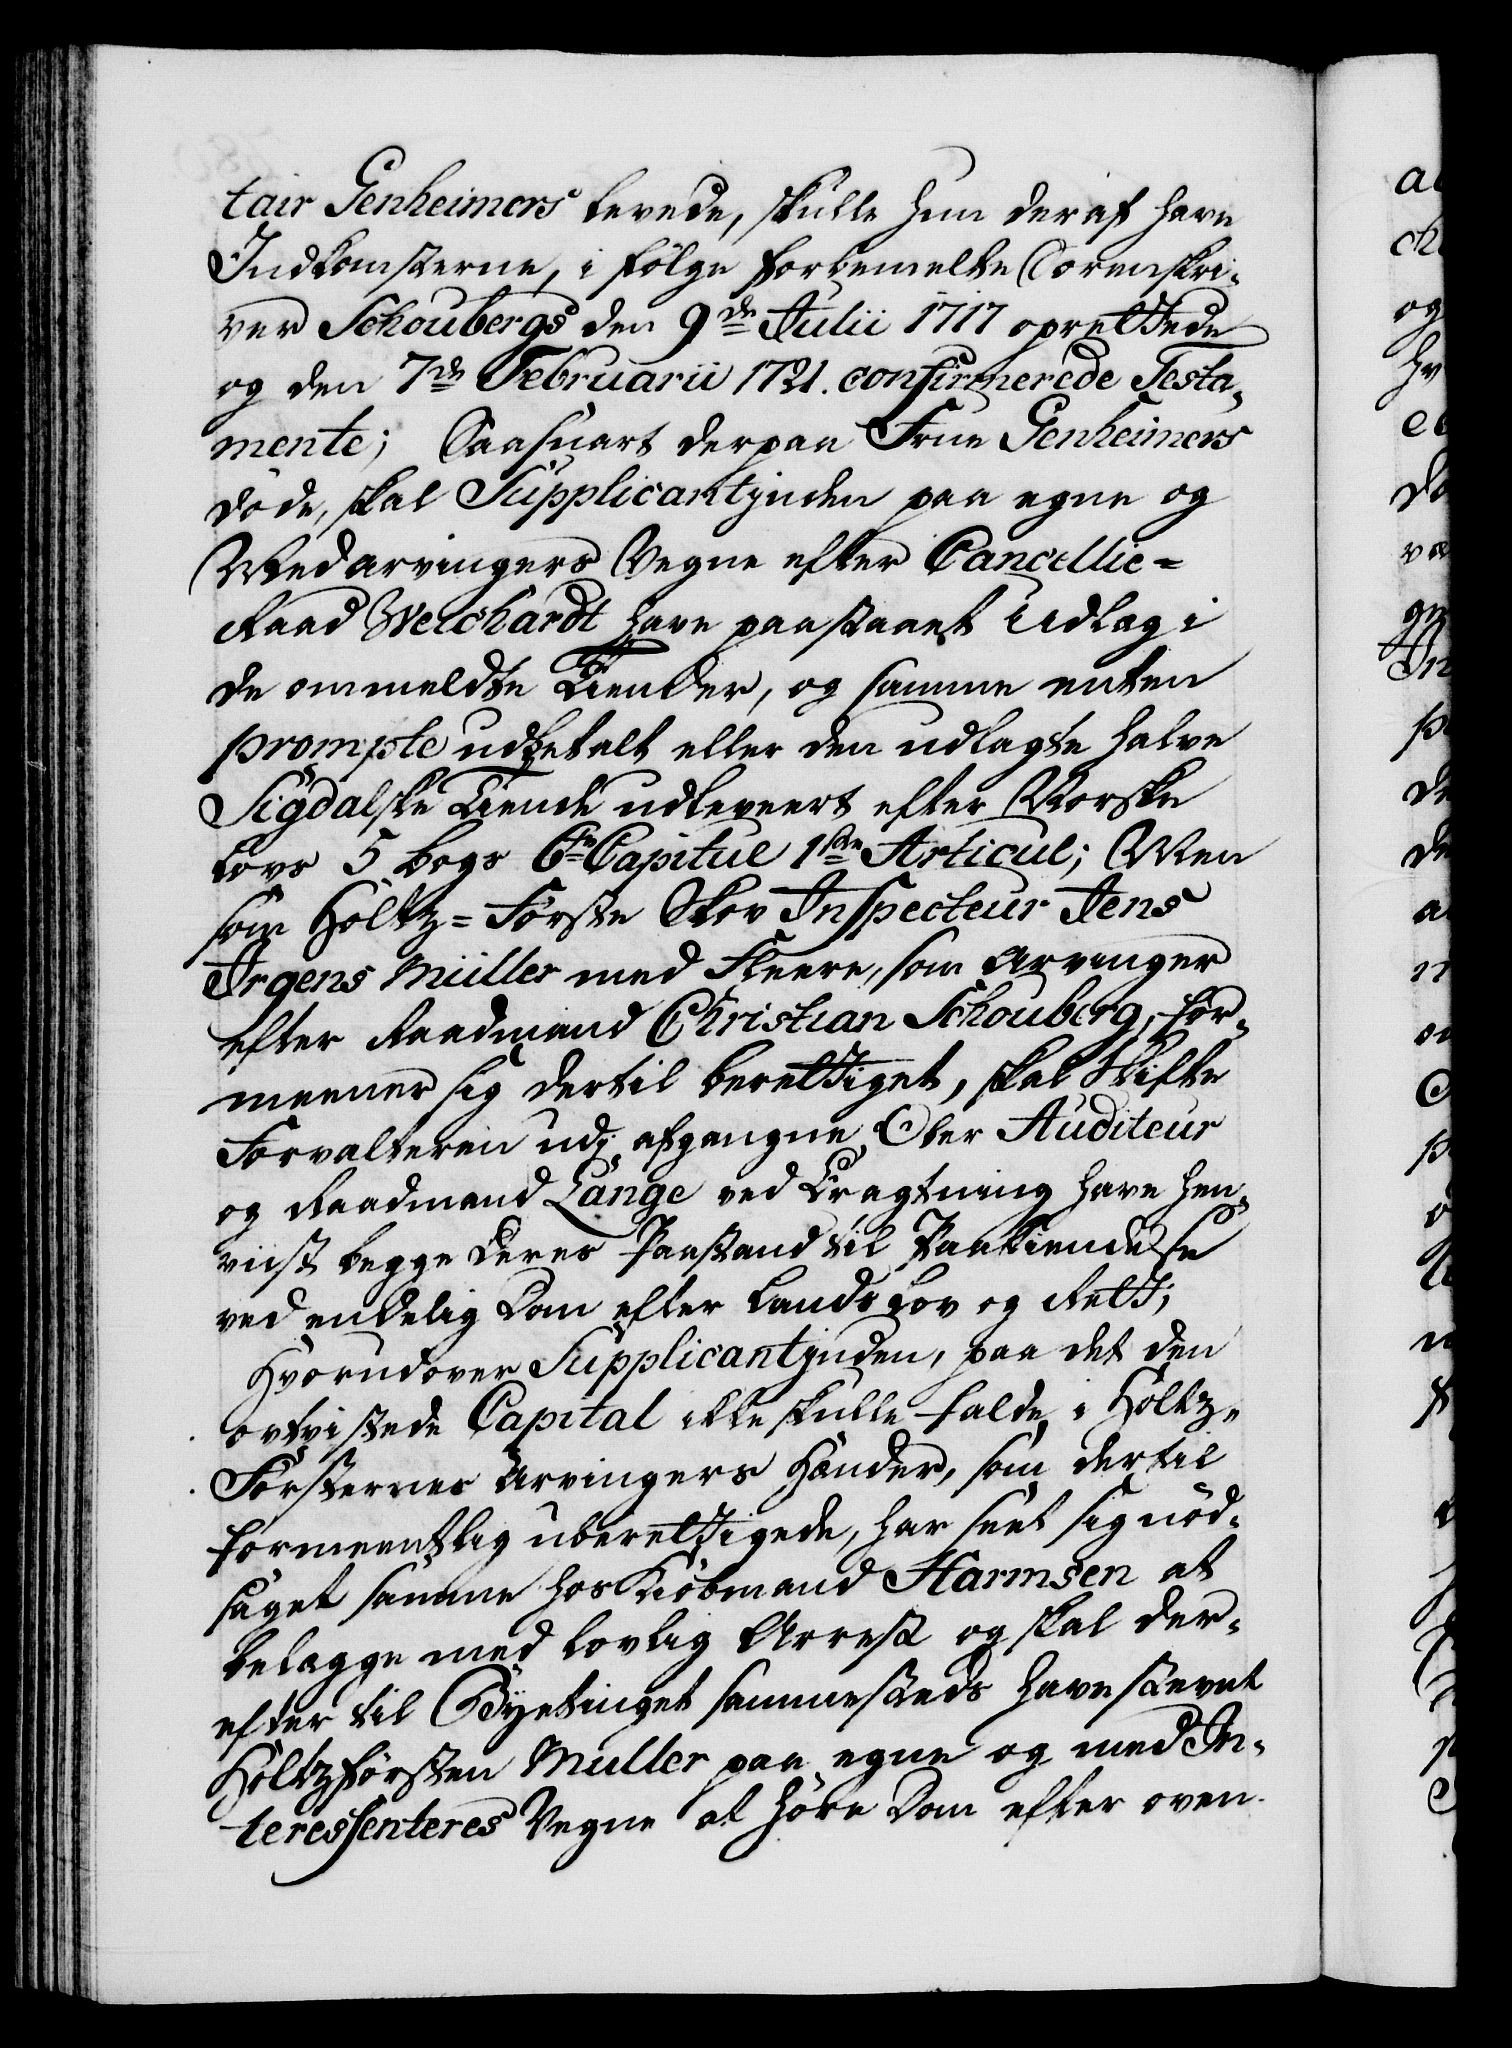 tair Genheimers levede, skulle hun deraf have
Indkomsterne, i følge forbemelte Sorenskri-
ver Schoubergs den 9de Julii 1717 oprettede
og den 7de Februarii 1721. confirmerede Testa-
mente; Saasnart derpaa Frue Genheimers
døde, skal Supplicantinden paa egne og
Medarvingers Vegne efter Cancellie=
Raad Weichardt have paastaaet Udlag i
de ommeldte Tiender, og samme enten
prompte udbetalt eller den udlagte halve
Sigdalske Tiende udleveert efter Norske
Lovs 5 Bogs 6te Capitul 1ste Articul; Men
som Holtz=Førster Skov Inspecteur Jens
Irgens Müller med Fleere, som Arvinger
efter Raadmand Christian Schouberg, for-
meener sig dertil berettiget, skal Skifte
Forvalteren udj afgangne Ober Auditeur
og Raadmand Lange ved Eragtning have hen-
viist begge deres Paastand til Paakiendelse
ved endelig Dom efter Lands Lov og Rett;
Hvorudover Supplicantinden, paa det den
omtvistede Capital ikke skulle falde i Holtz-
Førsternes Arvingers Hænder, som dertil
formeentlig uberettigede, har seet sig nød-
saget samme hos Kiøbmand Harmsen at
belægge med lovlig Arrest og skal der-
efter til Byetinget sammesteds have stevnt
Holtzførsten Muller paa egne og med In-
teressenteres Vegne at høre Dom efter oven-